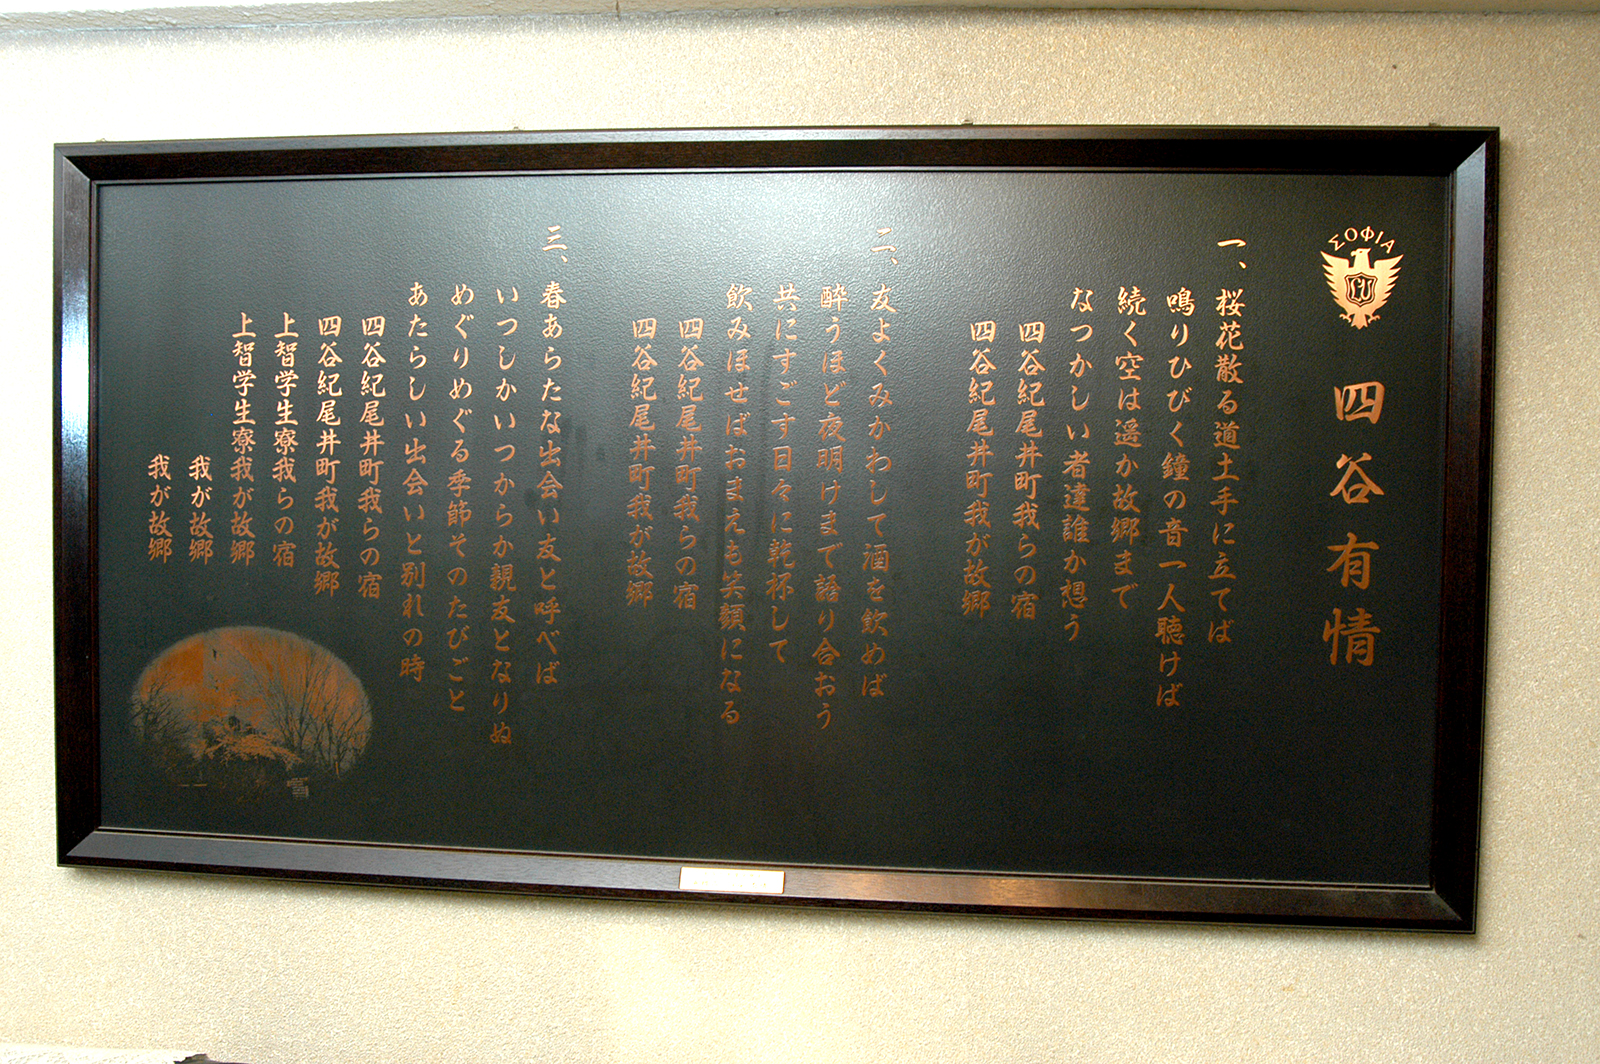 ΣΟΦΙΑ
四谷有情
一、桜花散る道土手に立てば
鳴りひびく鐘の音一人聴けば
続く空は遥か故郷まで
なつかしい者達誰か想う
四谷紀尾井町我らの宿
四谷紀尾井町我が故郷
二、友よくみかわして酒を飲めば
酔うほど夜明けまで語り合おう
共にすごす日々に乾杯して
飲みほせばおまえも笑顔になる
四谷紀尾井町我らの宿
四谷紀尾井町我が故郷
三、春あらたな出会い友と呼べば
いつしかいつからか親友となりぬ
めぐりめぐる季節そのたびごと
あたらしい出会いと別れの時
四谷紀尾井町我らの宿
四谷紀尾井町我が故郷
上智学生寮我らの宿
上智学生寮我が故郷
我が故郷
我が故郷